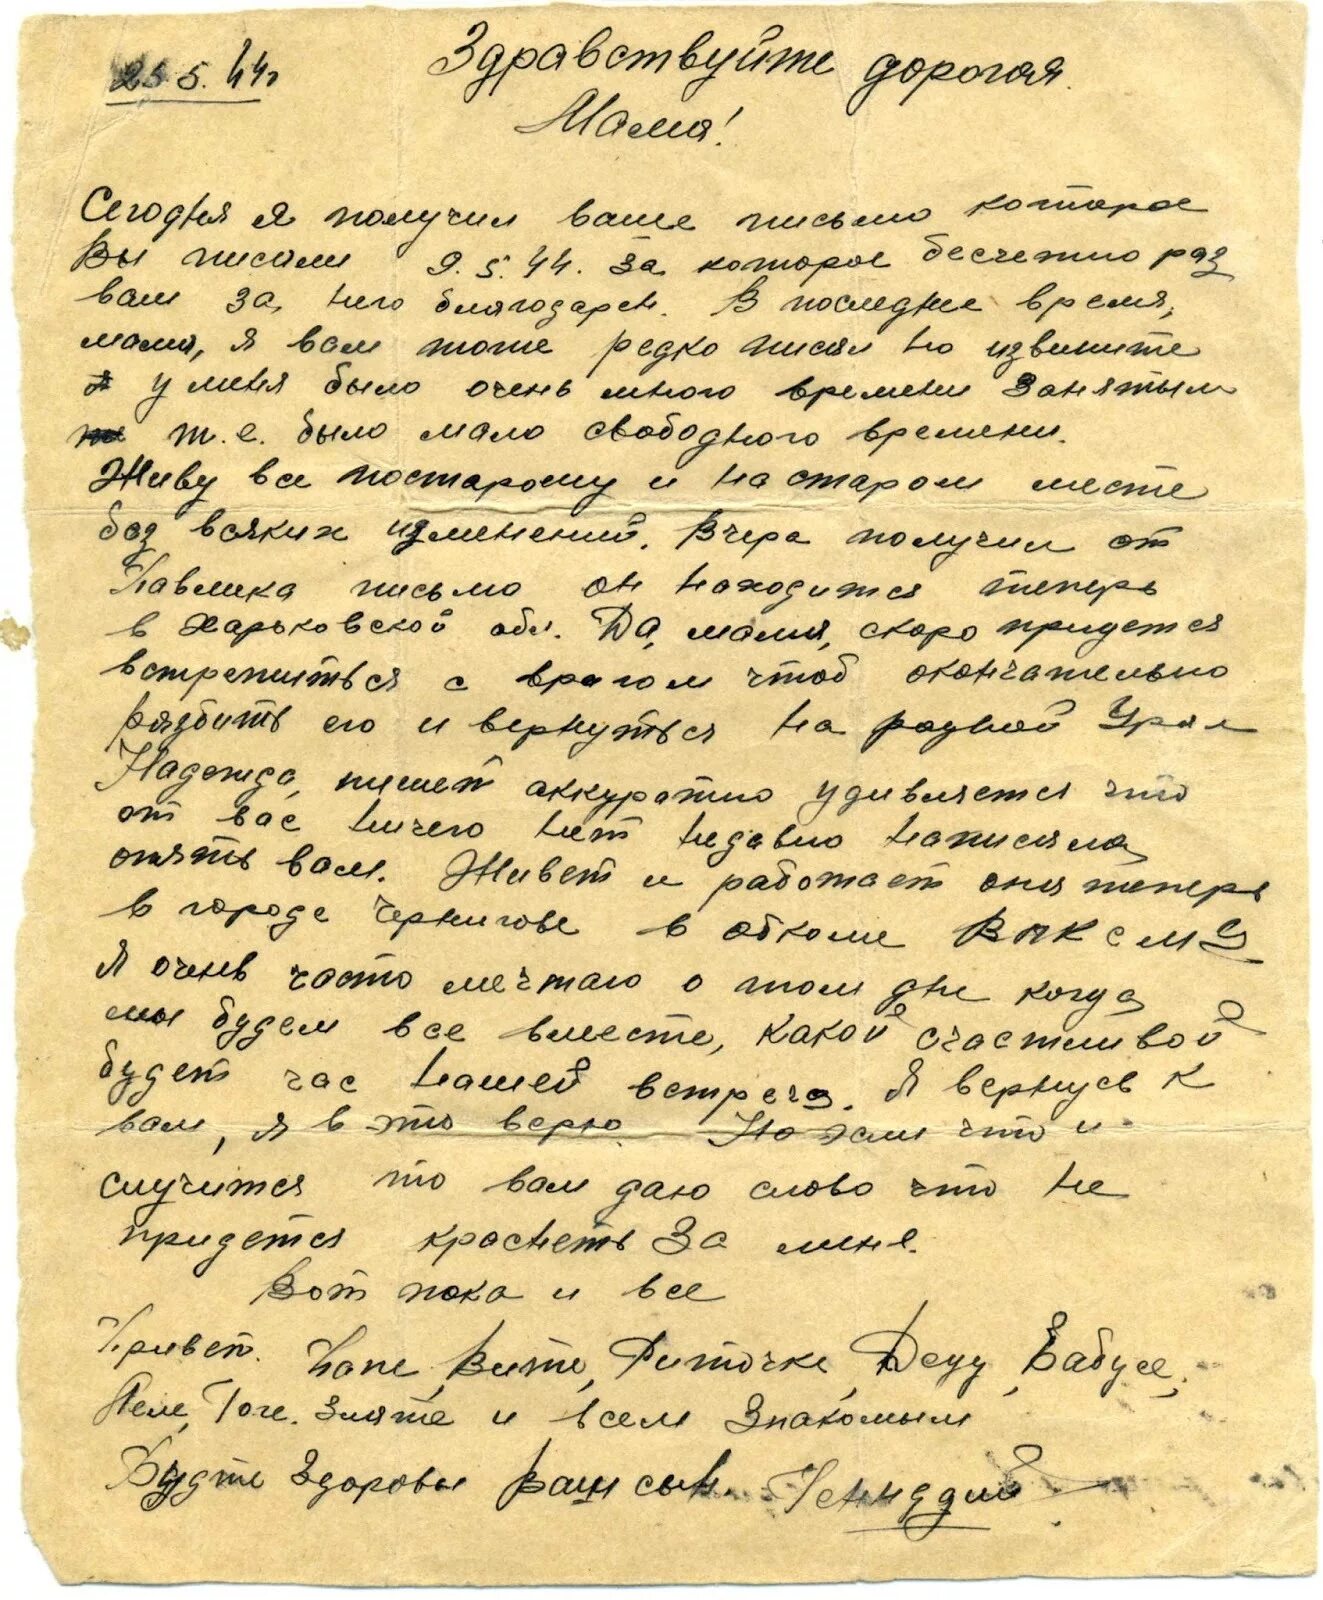 25 5. 44г
Здравствуйте дорогая
Мама!
Сегодня я получил ваше письмо которое
Вы писали 9.5.44. За которое бесчетно раз
вам за него благодарен. В последнее время,
мама, я вам тоже редко писал но извините
у меня было очень много времени занятым
т.е. было мало свободного времени.
Живу все постарому и на старом месте
без всяких изменений. Вчера получил от
Павлика письмо он находится теперь
в Харьковской обл. Да, мама, скоро придется
встретиться с врагом чтоб окончательно
разбить его и вернуться на родной Урал
Надежда, пишет аккуратно удивляется что
от вас ничего нет недавно написала
опять вам. Живет и работает она теперь
в городе Чернигове в обкоме ВЛКСМ
Я очень часто мечтаю о том дне когда
мы будем все вместе, какой счастливой
будет час нашей встречи. Я вернусь к
вам, я в это верю. Но если что и
случится то вам даю слово что не
придется краснеть за меня.
Вот пока и все
Привет. Папе, Вите, Риточке, Деду, Бабусе,
Леле, Тоне. Злате и всем Знакомым
Будте Здоровы Ваш сын. Гениддий